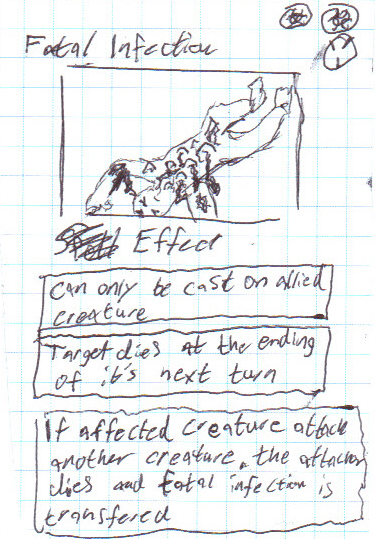 Fatal Infection
Effect
Can only be cast on allied
creature
Target dies at the ending
of it's next turn
If affected creature attack
another creature, the attacker
dies and fatal infection is
transfered